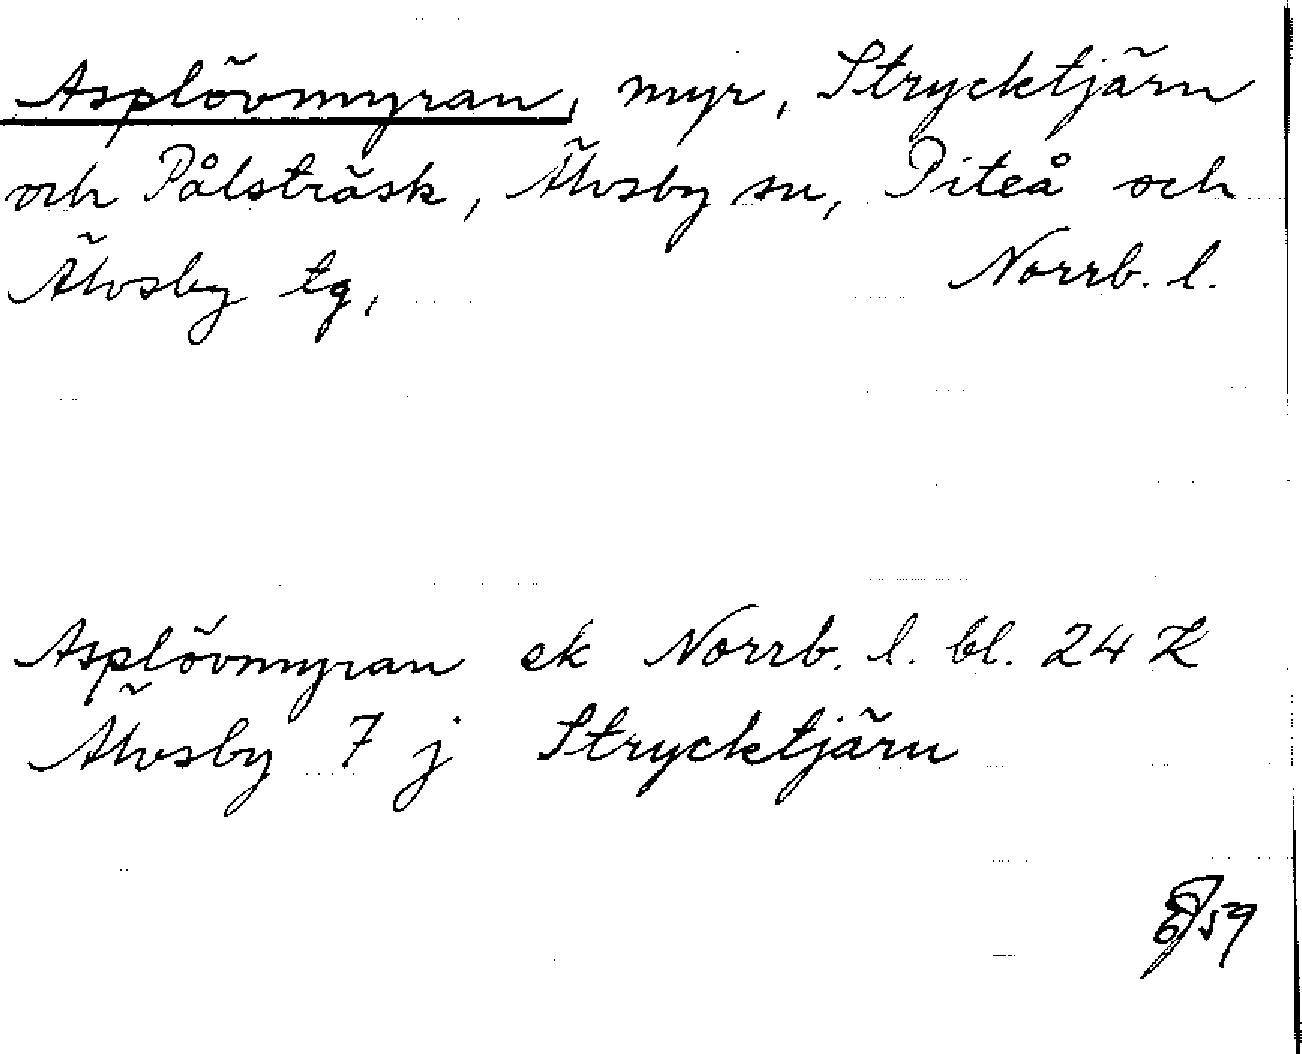 Asplövmyran, myr, Strycktjärn
och Pålsträsk, Älvsby sn, Piteå och
Älvsby tg, Norrb. l.
Asplövmyran ek Norrb. l. bl. 24 K
Älvsby 7 j Strycktjärn